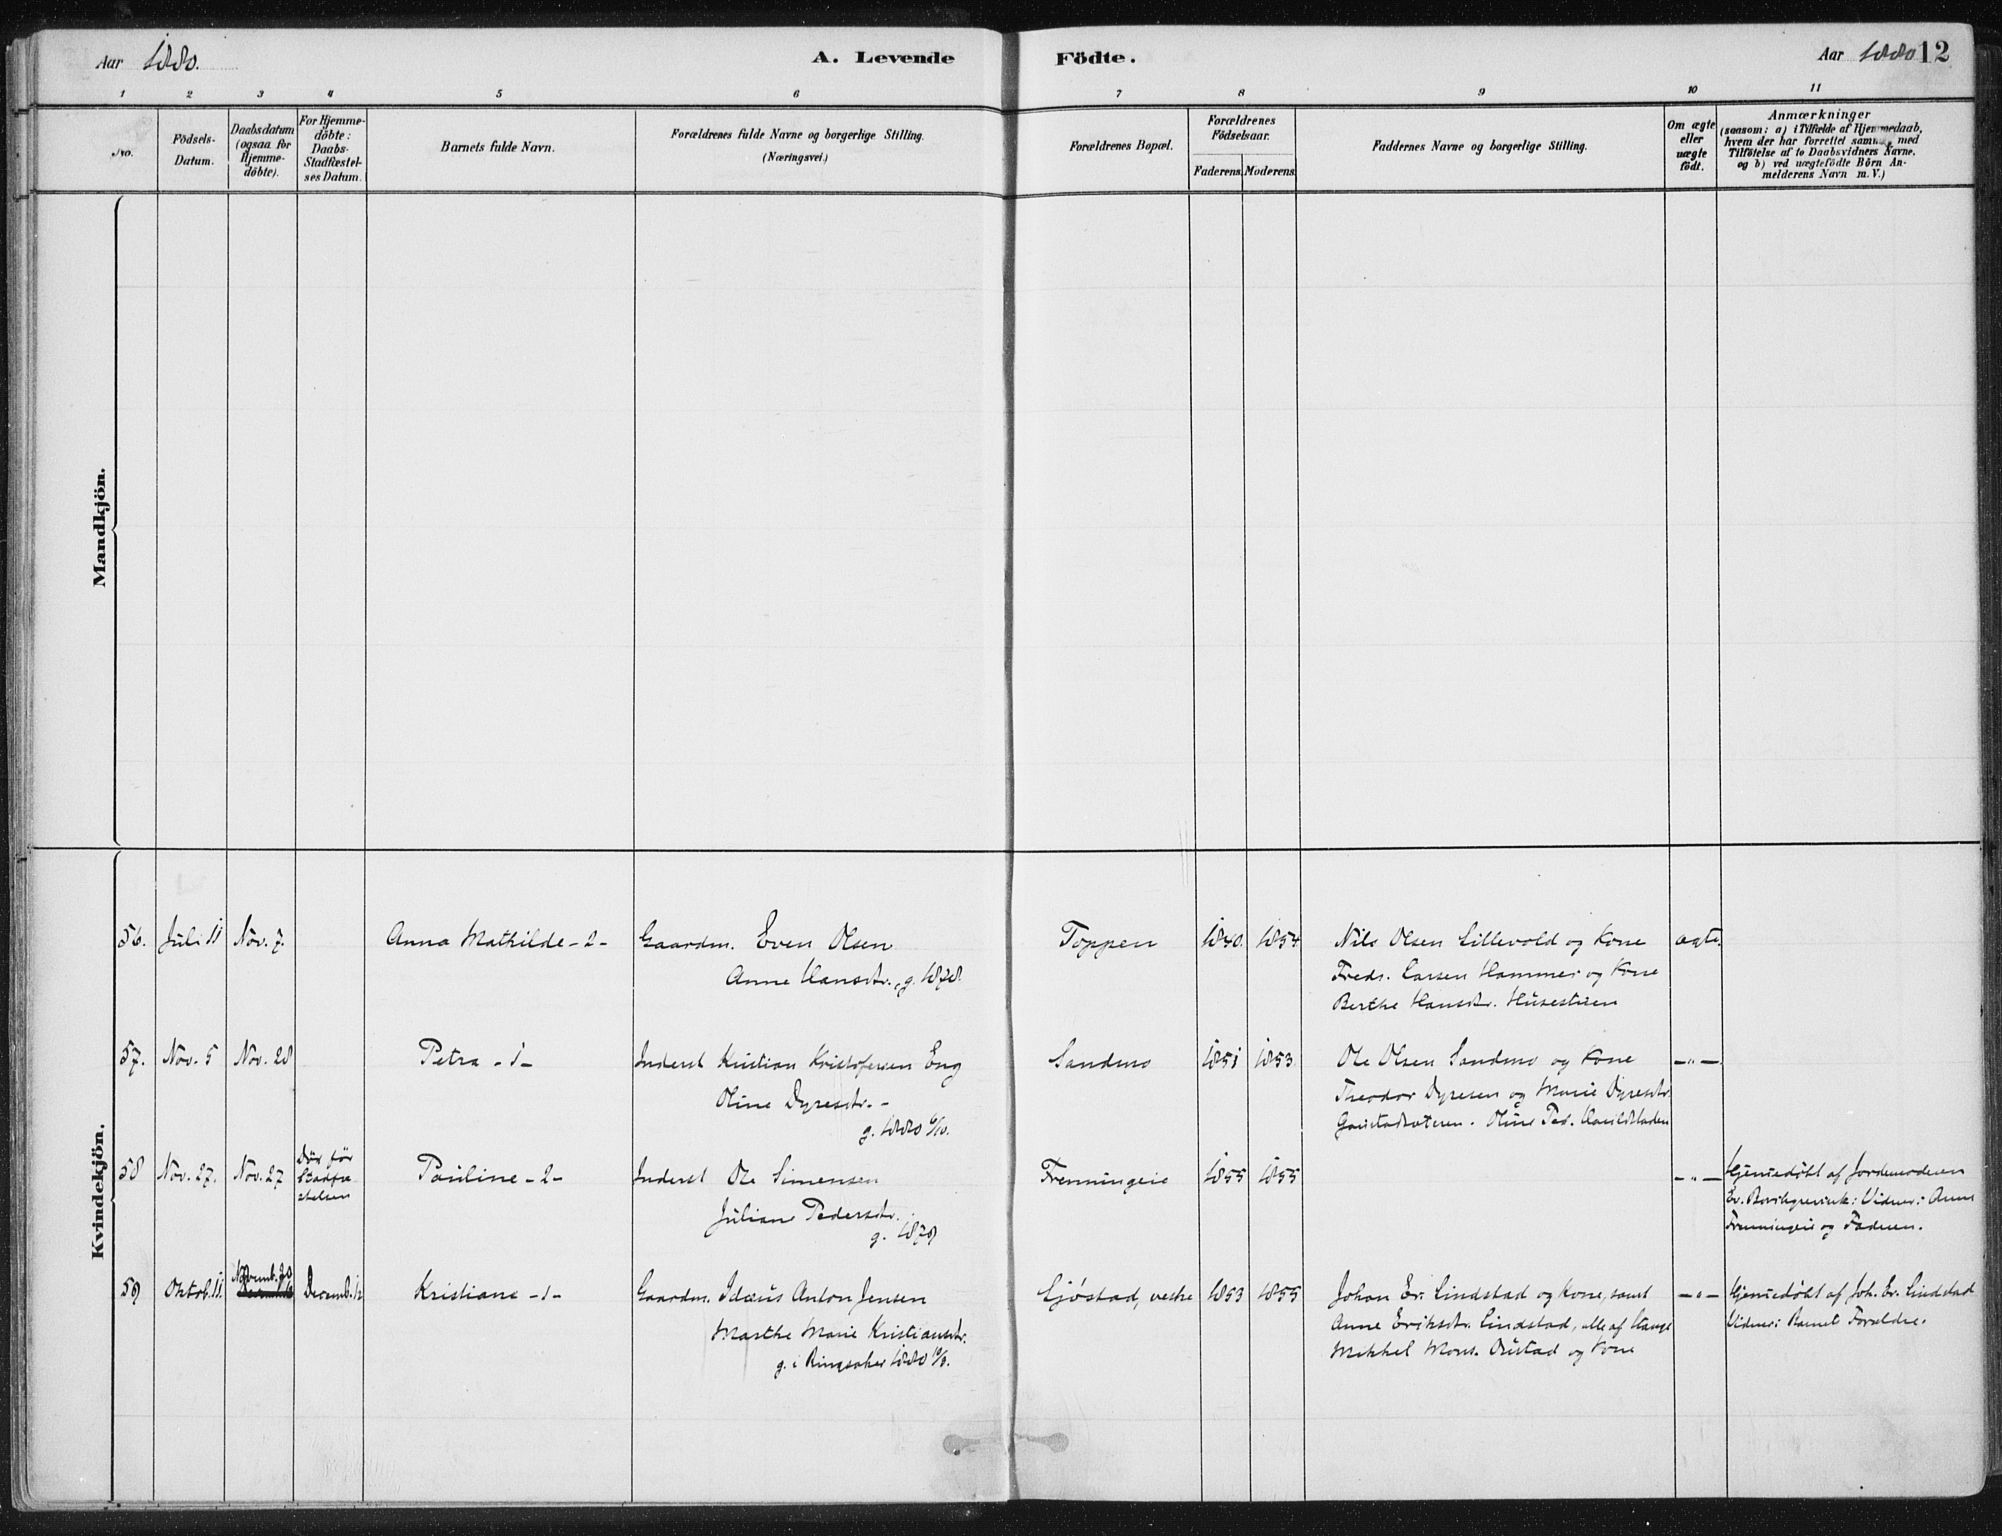 Aar 1880.
A. Levende
Födte.
Aar 1880 12
1 2 3 4 5 6 7 8 9 10 11
No.
Födsels-
Datum.
Daabsdatum
(ogsaa for
Hjemme-
döbte).
For Hjemme-
döbte:
Daabs-
Stadfæstel-
ses Datum.
Barnets fulde Navn.
Forældrenes fulde Navne og borgerlige Stilling.
(Næringsvei.)
Forældrenes Bopæl.
Forældrenes
Födselsaar.
Faderens. Moderens.
Faddernes Navne og borgerlige Stilling.
Om ægte
eller
uægte
födt.
Anmærkninger
(saasom: a) i Tilfælde af Hjemmedaab,
hvem der har forrettet samme, med
Tilföielse af to Daabsvidners Navne,
og b) ved uægtefödte Börn An-
melderens Navn m. V.)
Mandkjön.
Kvindekjön.
56. Juli 11 Nov. 7. Anna Mathilde - 2 - Gaardm. Even Olsen Toppen 1840. 1854 Nils Olsen Lillevold og Kone ægte.
Anne Hansdtr., g. 1878. Freds. Larsen Hammer og Kone
Berthe Hansdr. Husestuen
57. Nov. 5 Nov. 28 Petra - 1 - Inderst Kristian Kristofersen Eng Sandmo 1851 1853 Ole Olsen Sandmo og Kone - " -
Oline Dyresdtr. - Theodor Dyresen og Marie Dyresdtr.
g. 1880 6/10. Oline Ped.
58 Nov. 27. Nov. 27 Död för
Stadfæ-
stelsen
Pauline - 2 - Inderst Ole Simensen Frenningeie 1855 1855 - " - Hjemmedöbt af Jordemoderen
Juliane Pedersdtr. Vidner: Anne
g. 1879 Frenningeie og Faderen.
59 Oktob. 11. Novemb. 20 Decemb. 12 Kristiane - 1 - Gaardm. Idæus Anton Jensen Sjöstad, vestre 1853 1855 Johan Er. Lindstad og Kone, samt - " - Hjemmedöbt af Joh. Er. Lindstad
Marthe Marie Kristiansdtr. Anne Eriksdtr. Lindstad, alle af Stange Vidner: Barnets Forældre.
g. i Ringsaker 1880 Mikkel Mons. og Kone